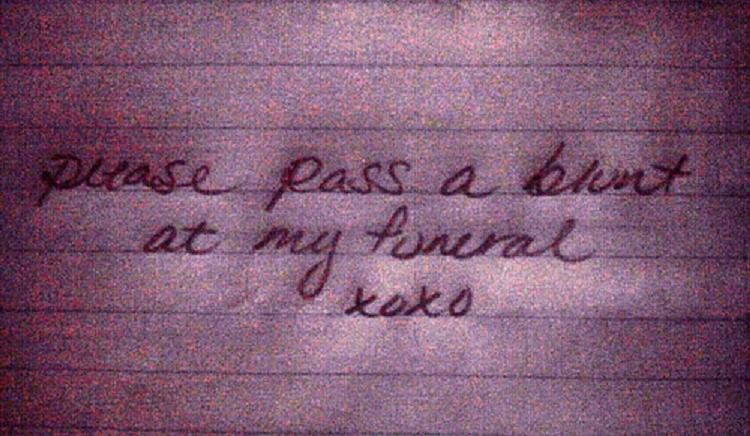 please pass a blunt
at my funeral
xoxo